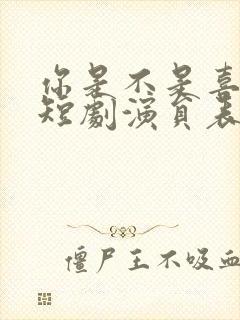 你是不是喜
短劇演員表
僵尸王不吸血